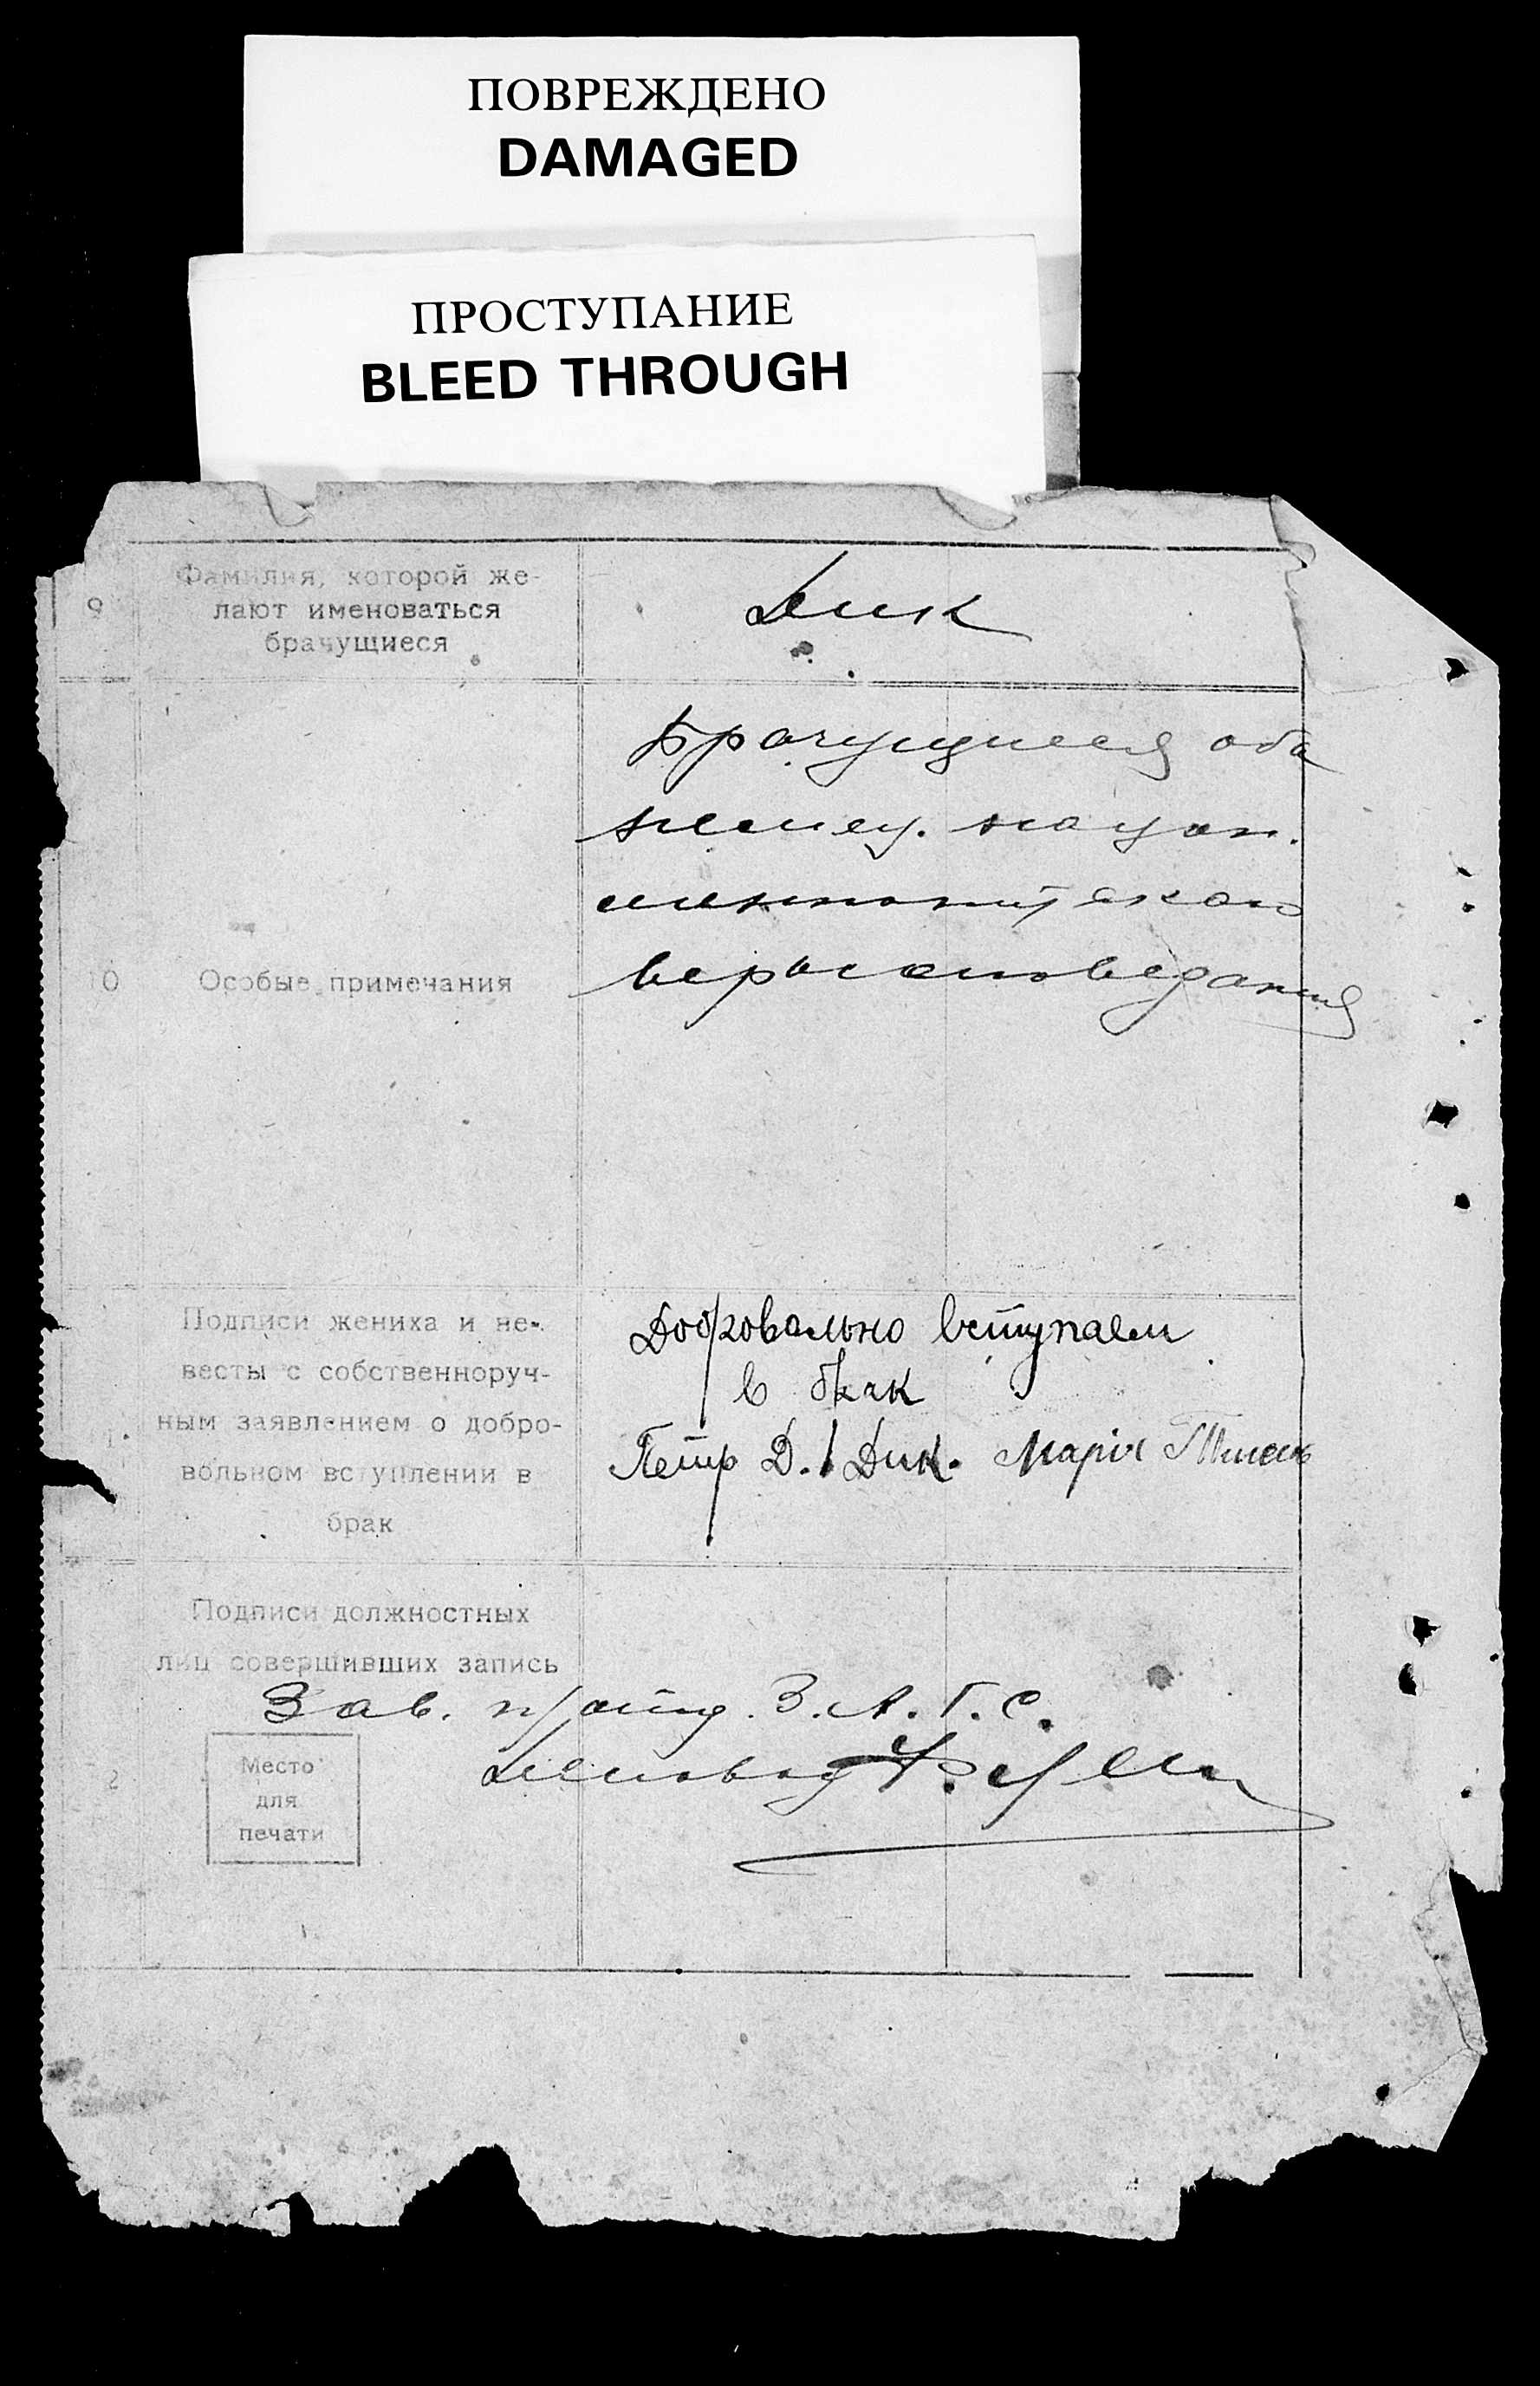 ПОВРЕЖДЕНО
DAMAGED
ПРОСТУПАНИЕ
BLEED THROUGH
9
Фамилия, которой же-
лают именоваться
брачущиеся
Дик
10
Особые примечания
Брачущиеся оба
немец. национ.
меннонитского
вероисповедания
Подписи жениха и не-
весты с собственноруч-
ным заявлением о добро-
вольном вступлении в
брак
Добровольно вступаем
в брак
Петр Д. Дик. Марія
Подписи должностных
лиц совершивших запись
Зав. п/отд. З.А.Г.С.
Место
для
печати
Деловод